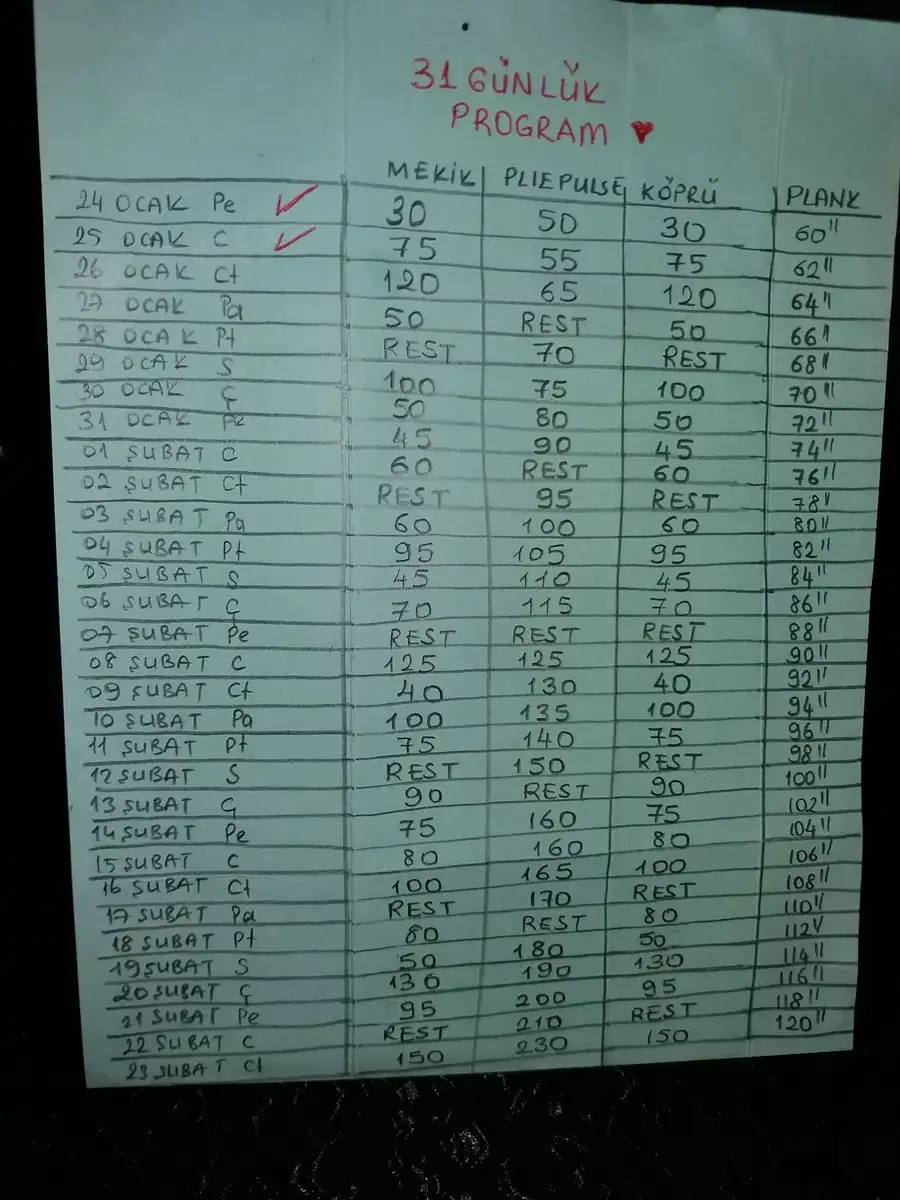 31 GÜNLÜK
PROGRAM
MEKİK PLIE PULSE KÖPRÜ PLANK
24 OCAK Pe ✓ 30 50 30 60"
25 OCAK C ✓ 75 55 75 62"
26 OCAK Ct 120 65 120 64"
27 OCAK Pa 50 REST 50 66"
28 OCAK Pt REST 70 REST 68"
29 OCAK S 100 75 100 70"
30 OCAK Ç 50 80 50 72"
31 OCAK Pe 45 90 45 74"
01 ŞUBAT C 60 REST 60 76"
02 ŞUBAT Ct REST 95 REST 78"
03 ŞUBAT Pa 60 100 60 80"
04 ŞUBAT Pt 95 105 95 82"
05 ŞUBAT S 45 110 45 84"
06 ŞUBAT Ç 70 115 70 86"
07 ŞUBAT Pe REST REST REST 88"
08 ŞUBAT C 125 125 125 90"
09 ŞUBAT Ct 40 130 40 92"
10 ŞUBAT Pa 100 135 100 94"
11 ŞUBAT Pt 75 140 75 96"
12 ŞUBAT S REST 150 REST 98"
13 ŞUBAT Ç 90 REST 90 100"
14 ŞUBAT Pe 75 160 75 102"
15 ŞUBAT C 80 160 80 104"
16 ŞUBAT Ct 100 165 100 106"
17 ŞUBAT Pa REST 170 REST 108"
18 ŞUBAT Pt 80 REST 80 110"
19 ŞUBAT S 50 180 50 112"
20 ŞUBAT Ç 130 190 130 114"
21 ŞUBAT Pe 95 200 95 116"
22 ŞUBAT C REST 210 REST 118"
23 ŞUBAT Ct 150 230 150 120"